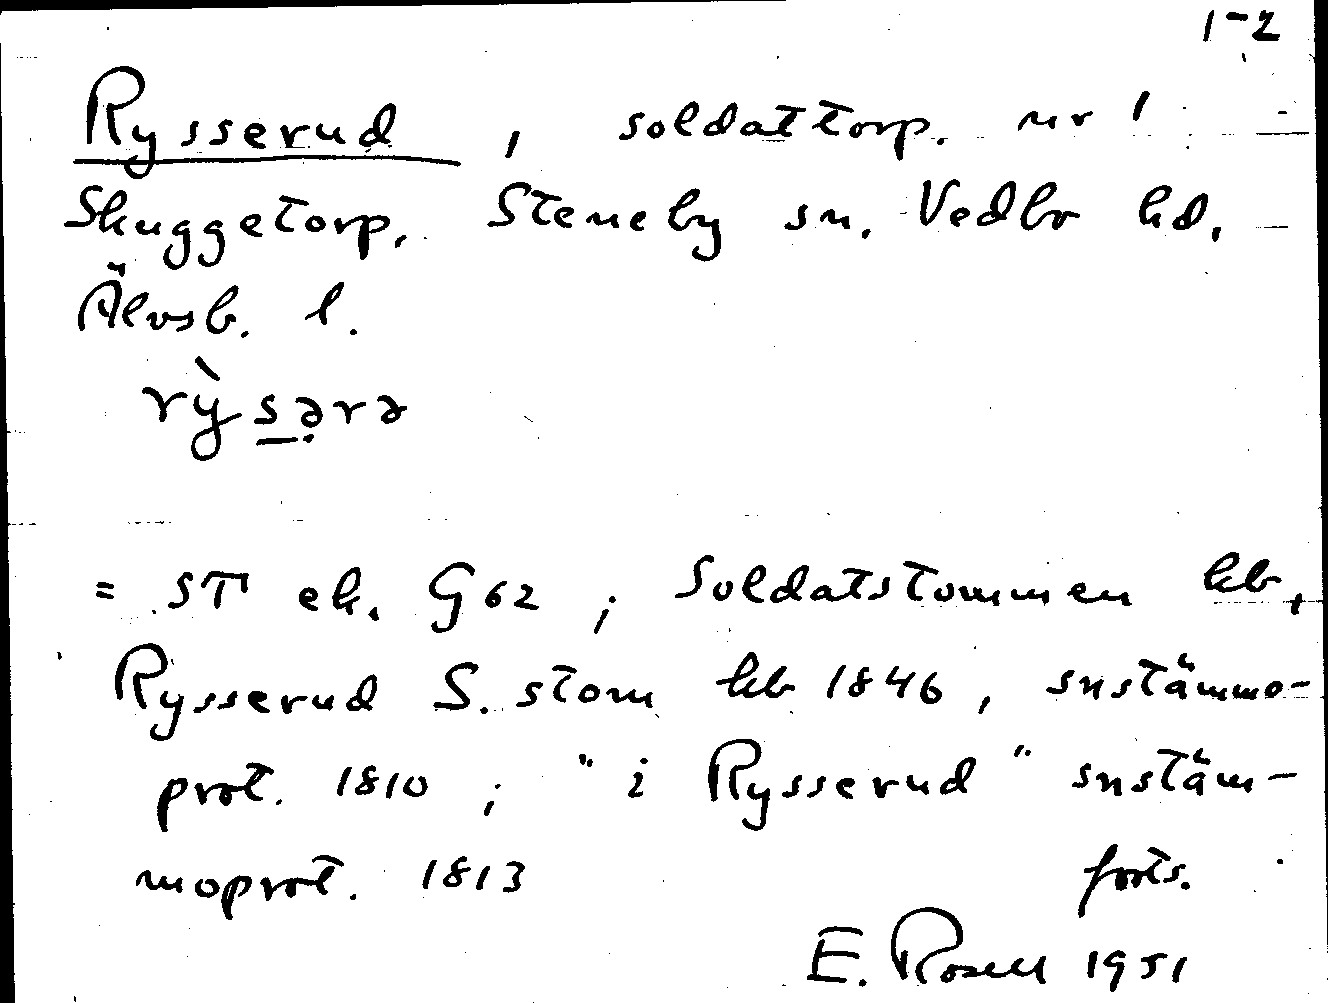 1-2
Rysserud, soldattorp. nr 1
Skuggetorp, Steneby sn. Vedbo hd,
Älvsb. l.
rỳsərə
= ST ek. G 62; Soldatstommen kb,
Rysserud S. stom kb 1846, snstämmo-
prot. 1810; "i Rysserud" snstäm-
moprot. 1813 forts.
E. Rosell 1951